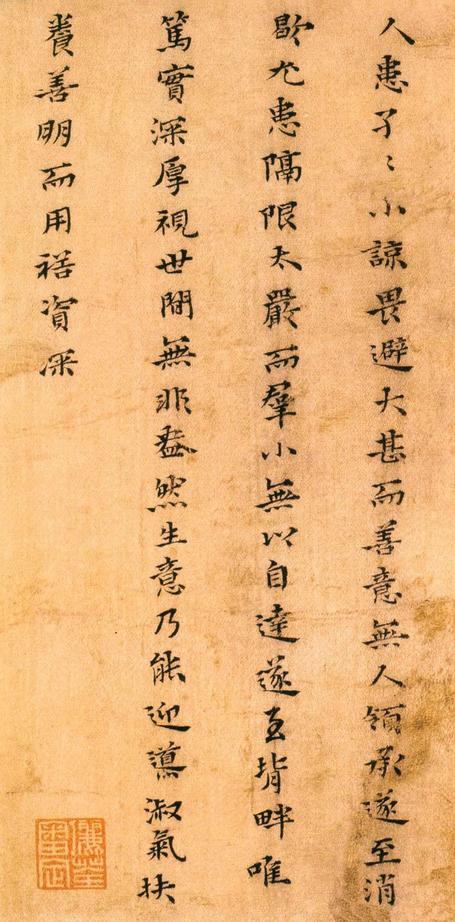 人患孑〻小諒畏避大甚而善意無人領承遂至消
歇尤患隔限太嚴而羣小無以自達遂至背畔唯
篤實深厚視世間無非盎然生意乃能迎導淑氣扶
養善明而用資深